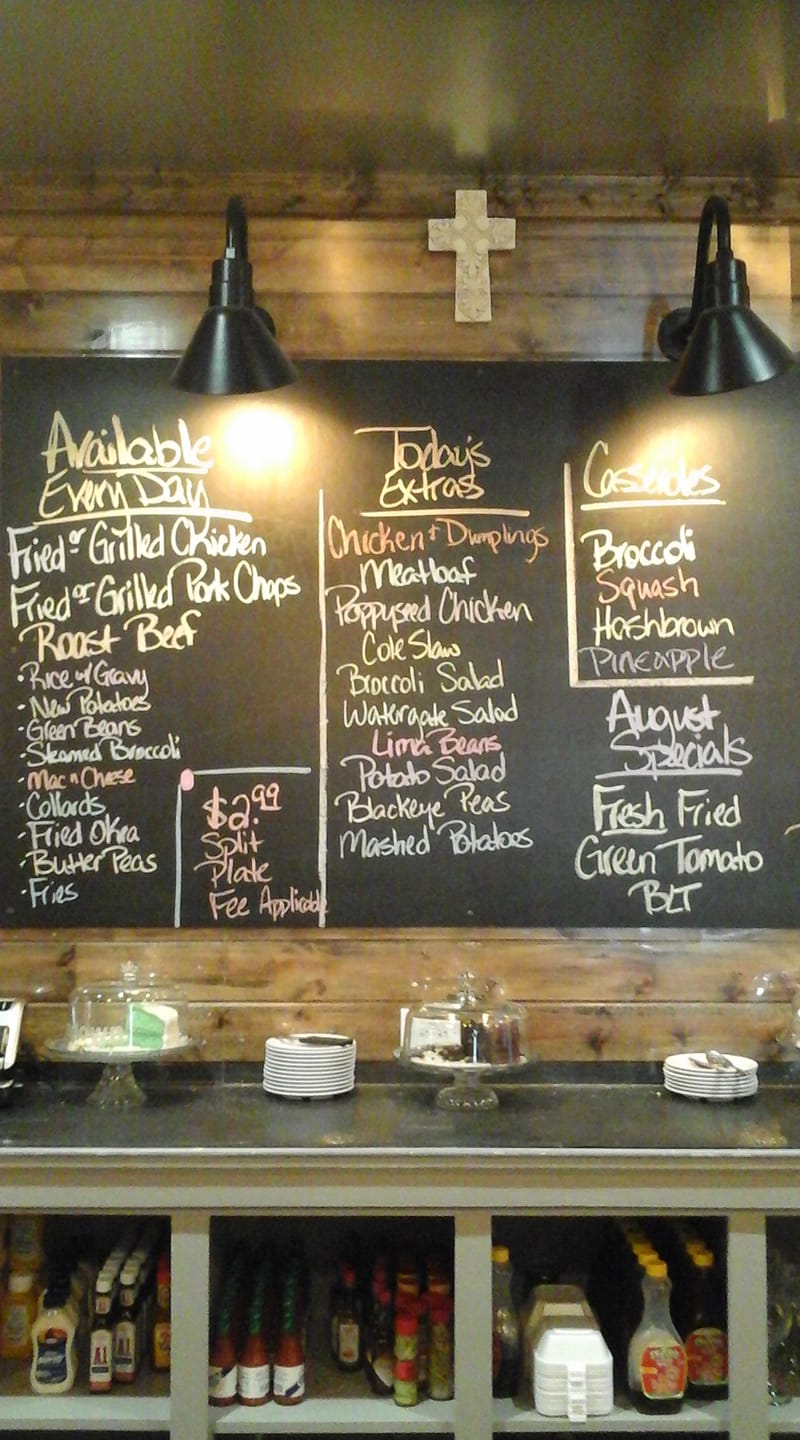 Available
Every Day
Fried or Grilled Chicken
Fried or Grilled Pork Chops
Roast Beef
·Rice w/ Gravy
·New Potatoes
·Green Beans
·Steamed Broccoli
·Mac n Cheese
·Collards
·Fried Okra
·Butter Peas
·Fries
$2.99
Split
Plate
Fee Applicable
Today's
Extras
Chicken & Dumplings
Meatloaf
Poppyseed Chicken
Cole Slaw
Broccoli Salad
Watergate Salad
Lima Beans
Potato Salad
Blackeye Peas
Mashed Potatoes
Casseroles
Broccoli
Squash
Hashbrown
Pineapple
August
Specials
Fresh Fried
Green Tomato
BLT
A1
A1